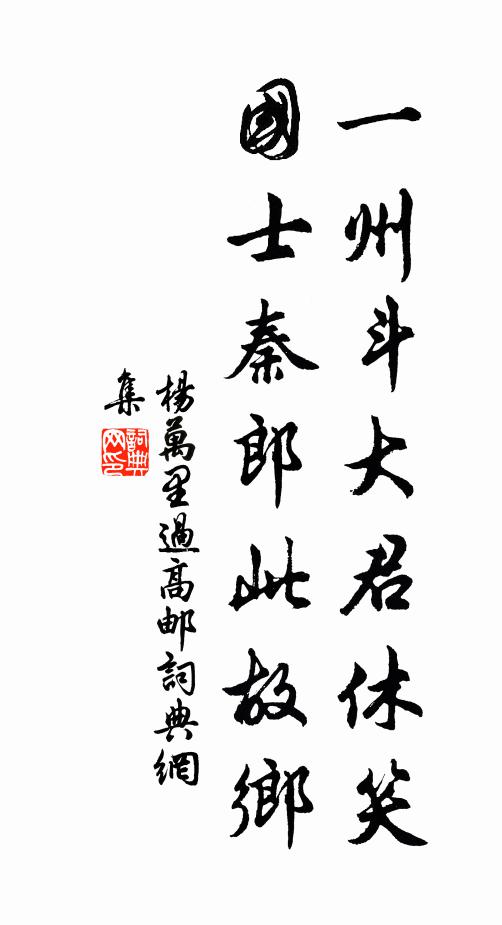 一州斗大君休笑
國士秦郎此故鄉
楊萬里過高邮詞典網
集
詞典
网印